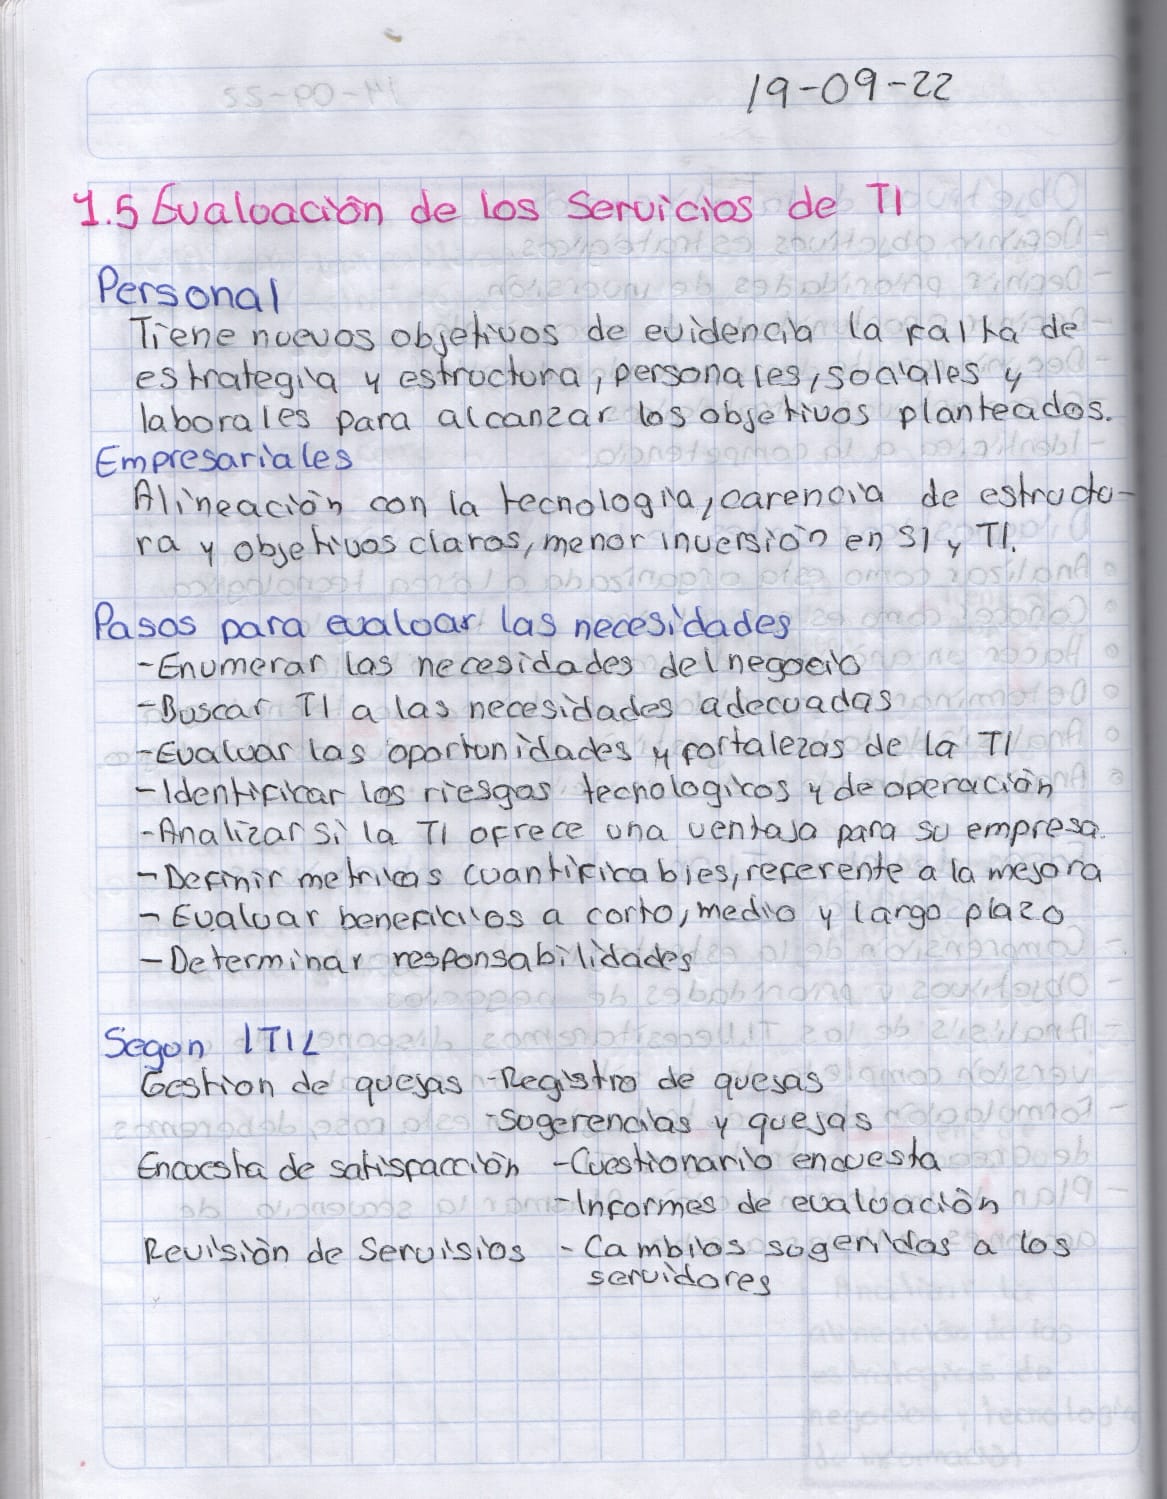 19-09-22
1.5 Evaluación de los Servicios de TI
Personal
Tiene nuevos objetivos de evidencia la falta de
estrategia y estructura, personales, sociales y
laborales para alcanzar los objetivos planteados.
Empresariales
Alineación con la tecnologia, carencia de estructu-
ra y objetivos claros, menor inversión en SI y TI.
Pasos para evaluar las necesidades
-Enumerar las necesidades del negocio
-Buscar TI a las necesidades adecuadas
-Evaluar las oportunidades y fortalezas de la TI
-Identificar los riesgos tecnologicos y de operación
-Analizar si la TI ofrece una ventaja para su empresa.
-Definir metricas cuantificables, referente a la mejora
-Evaluar beneficios a corto, medio y largo plazo
-Determinar responsabilidades
Segun ITIL
Gestion de quejas -Registro de quejas
-Sugerencias y quejas
Encuesta de satisfacción -Cuestionario encuesta
-Informes de evaluación
Revisión de Servisios -Cambios sugeridos a los
servidores